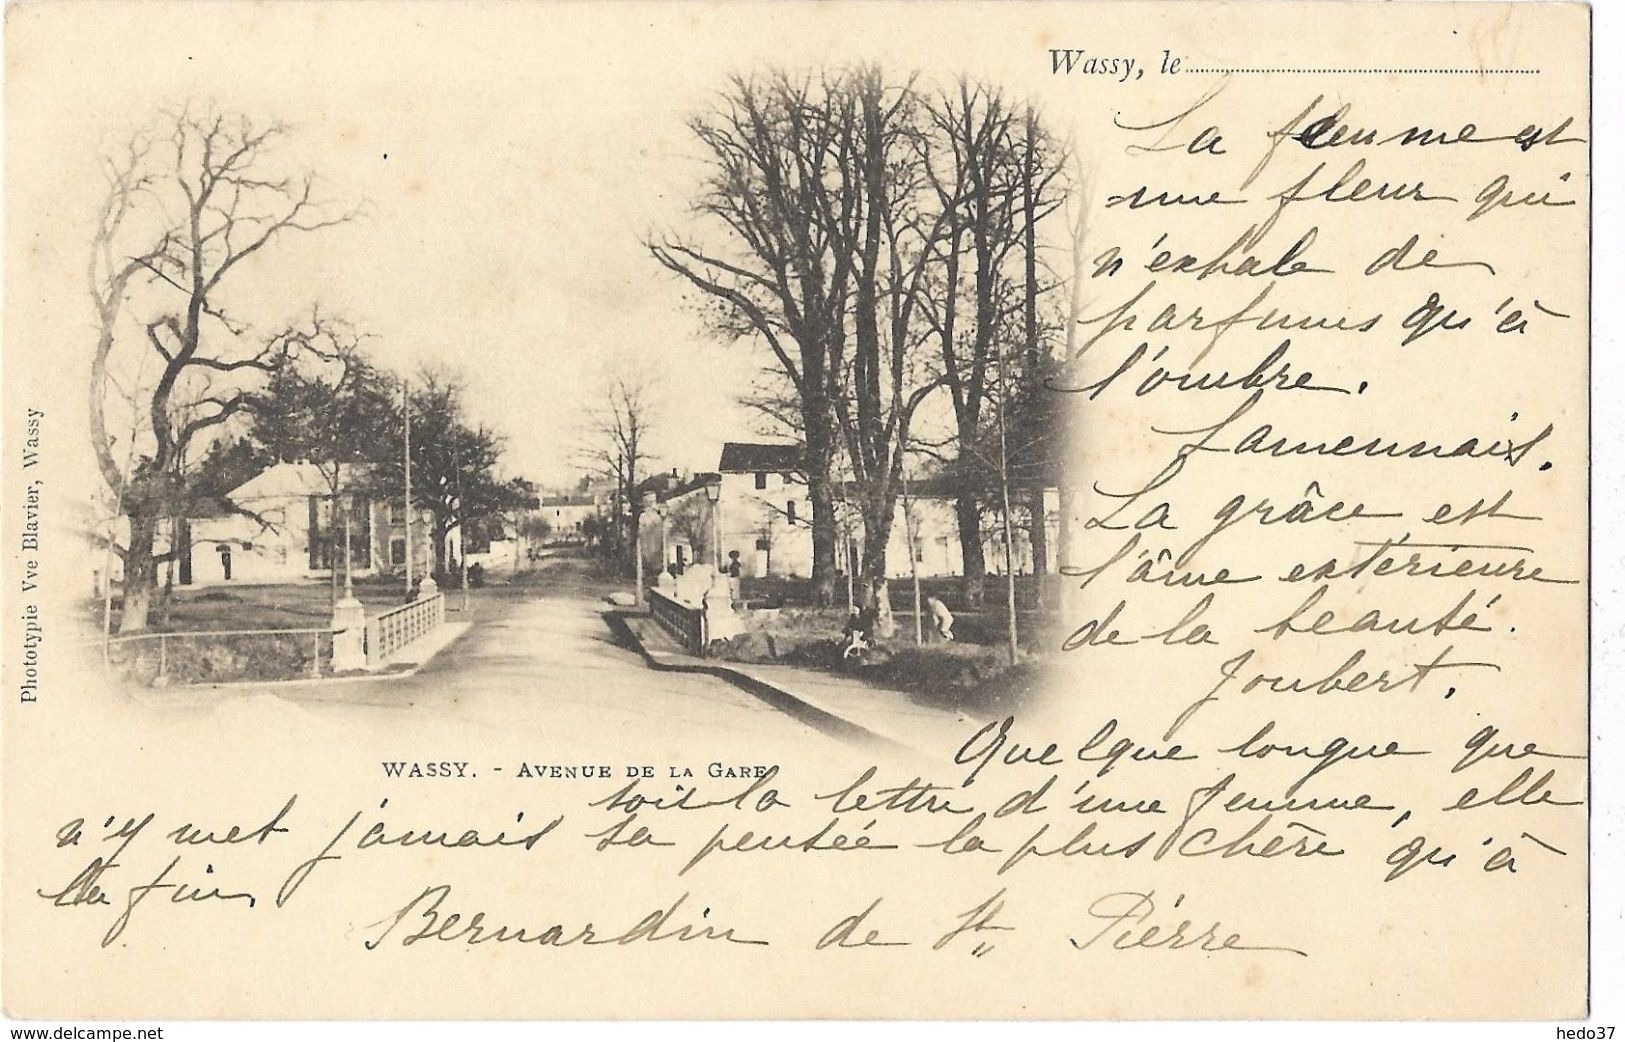 Wassy, le
La femme est
une fleur qui
n'exhale de
parfums qu'à
l'ombre.
Lamennais.
La grâce est
l'âme extérieure
de la beauté.
Joubert.
Quelque longue que
soit la lettre d'une femme, elle
n'y met jamais sa pensée la plus chère qu'à
la fin.
Bernardin de St Pierre
WASSY. - AVENUE DE LA GARE
Phototypie Vve Blavier, Wassy
www.delcampe.net
hedo37